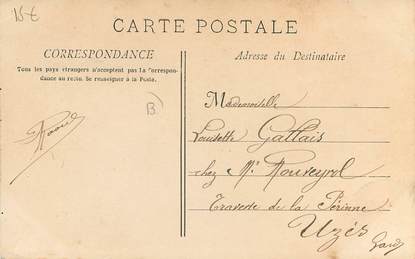 15€
CARTE POSTALE
CORRESPONDANCE
Tous les pays étrangers n'acceptent pas la Correspon-
dance au recto. Se renseigner à la Poste.
B
Raoul
Adresse du Destinataire
Mademoiselle
Louisette Gallais
chez Mr Rouveyrol
Traverse de la Périnne
Uzès
Gard